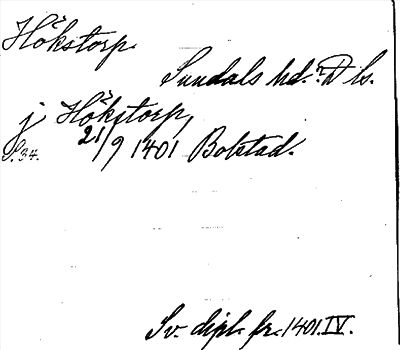 Hökstorp
Sundals hd. D ls.
j Hökstorp,
S. 34. 21/9 1401 Bolstad.
Sv. dipl. fr. 1401. IV.